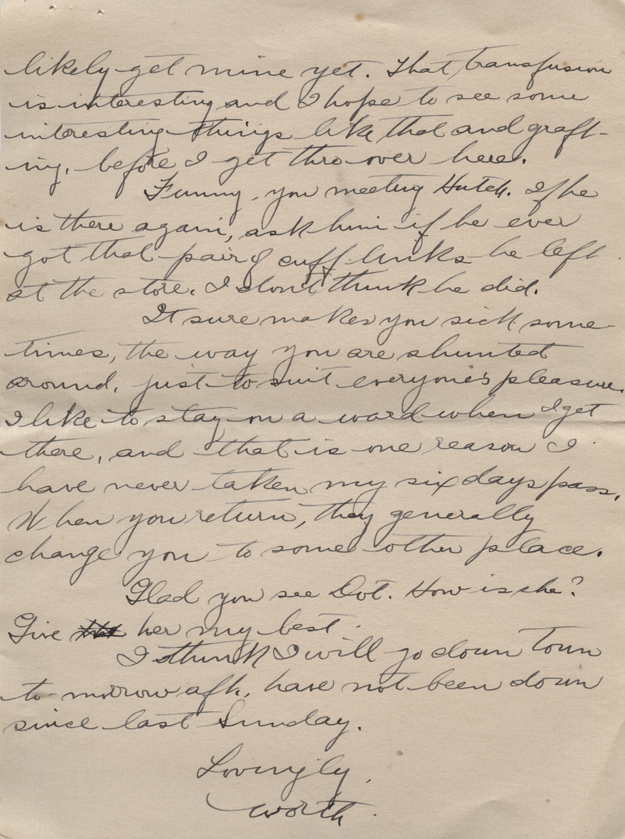 likely get mine yet. That transfusion
is interesting and I hope to see some
interesting things like that and graft-
ing, before I get thro over here.
Funny, you meeting Hutch. If he
is there again, ask him if he ever
got that pair of cuff links he left
at the store. I don't think he did.
It sure makes you sick some-
times, the way you are shunted
around, just to suit everyone's pleasure.
I like to stay on a ward when I get
there, and that is one reason I
have never taken my six days pass.
When you return, they generally
change you to some other place.
Glad you see Dot. How is she?
Give her my best.
I think I will go down town
to-morrow aft, have not been down
since last Sunday.
Lovingly,
Worth.